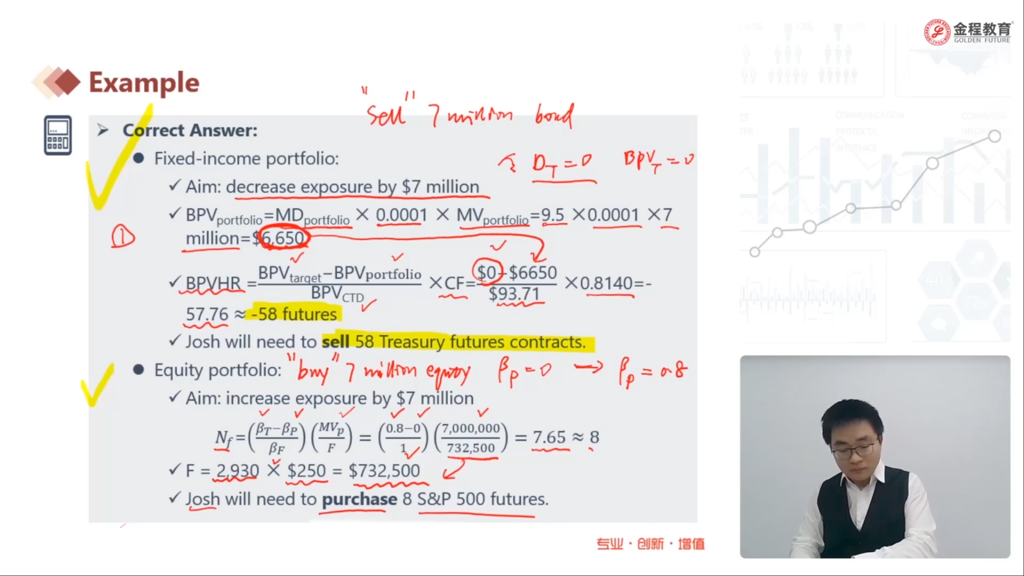 金程教育
GOLDEN FUTURE
Example
"Sell" 7 million bond
Correct Answer:
Fixed-income portfolio:
D_T=0 BPV_T=0
✓ Aim: decrease exposure by $7 million
✓ BPV_portfolio=MD_portfolio × 0.0001 × MV_portfolio=9.5 ×0.0001 ×7
① million=$6,650
✓ BPVHR = (BPV_target−BPV_portfolio)/BPV_CTD ×CF= ($0−$6650)/$93.71 ×0.8140=-
57.76 ≈ -58 futures
✓ Josh will need to sell 58 Treasury futures contracts.
Equity portfolio: "buy" 7 million equity β_P=0 → β_P=0.8
✓ Aim: increase exposure by $7 million
N_f=((β_T−β_P)/β_F)(MV_p/F) = ((0.8−0)/1)(7,000,000/732,500) = 7.65 ≈ 8
✓ F = 2,930 × $250 = $732,500
✓ Josh will need to purchase 8 S&P 500 futures.
专业·创新·增值